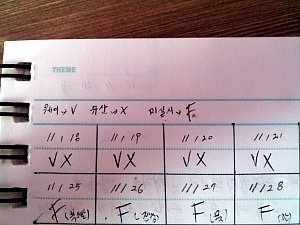 THEME
→ V 유산 → X 미실시 → F
11/18 11/19 11/20 11/21
VX VX VX VX
11/25 11/26 11/27 11/28
F F F F